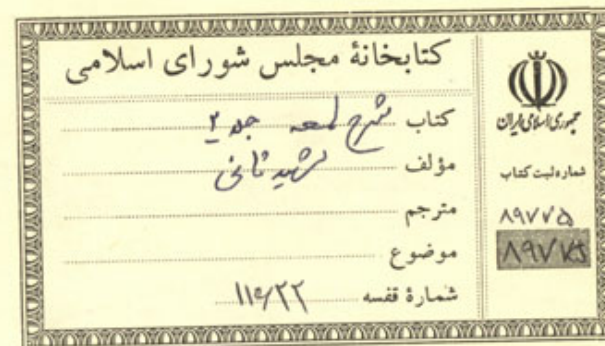 کتابخانهٔ مجلس شورای اسلامی
کتاب شرح لمعه جلد ۲
مؤلف شهید ثانی
مترجم
موضوع
شمارهٔ قفسه
جمهوری اسلامی ایران
شماره ثبت کتاب
۸۹۷۷۵